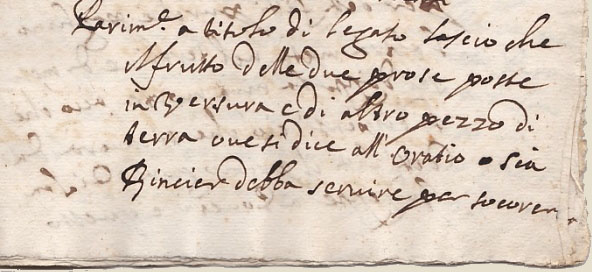 Parim.e a titolo di legato lascio che
il frutto delle due prose poste
in Versura e di altro pezzo di
terra ove si dice all' Oratio o sia
debba servire per socorer